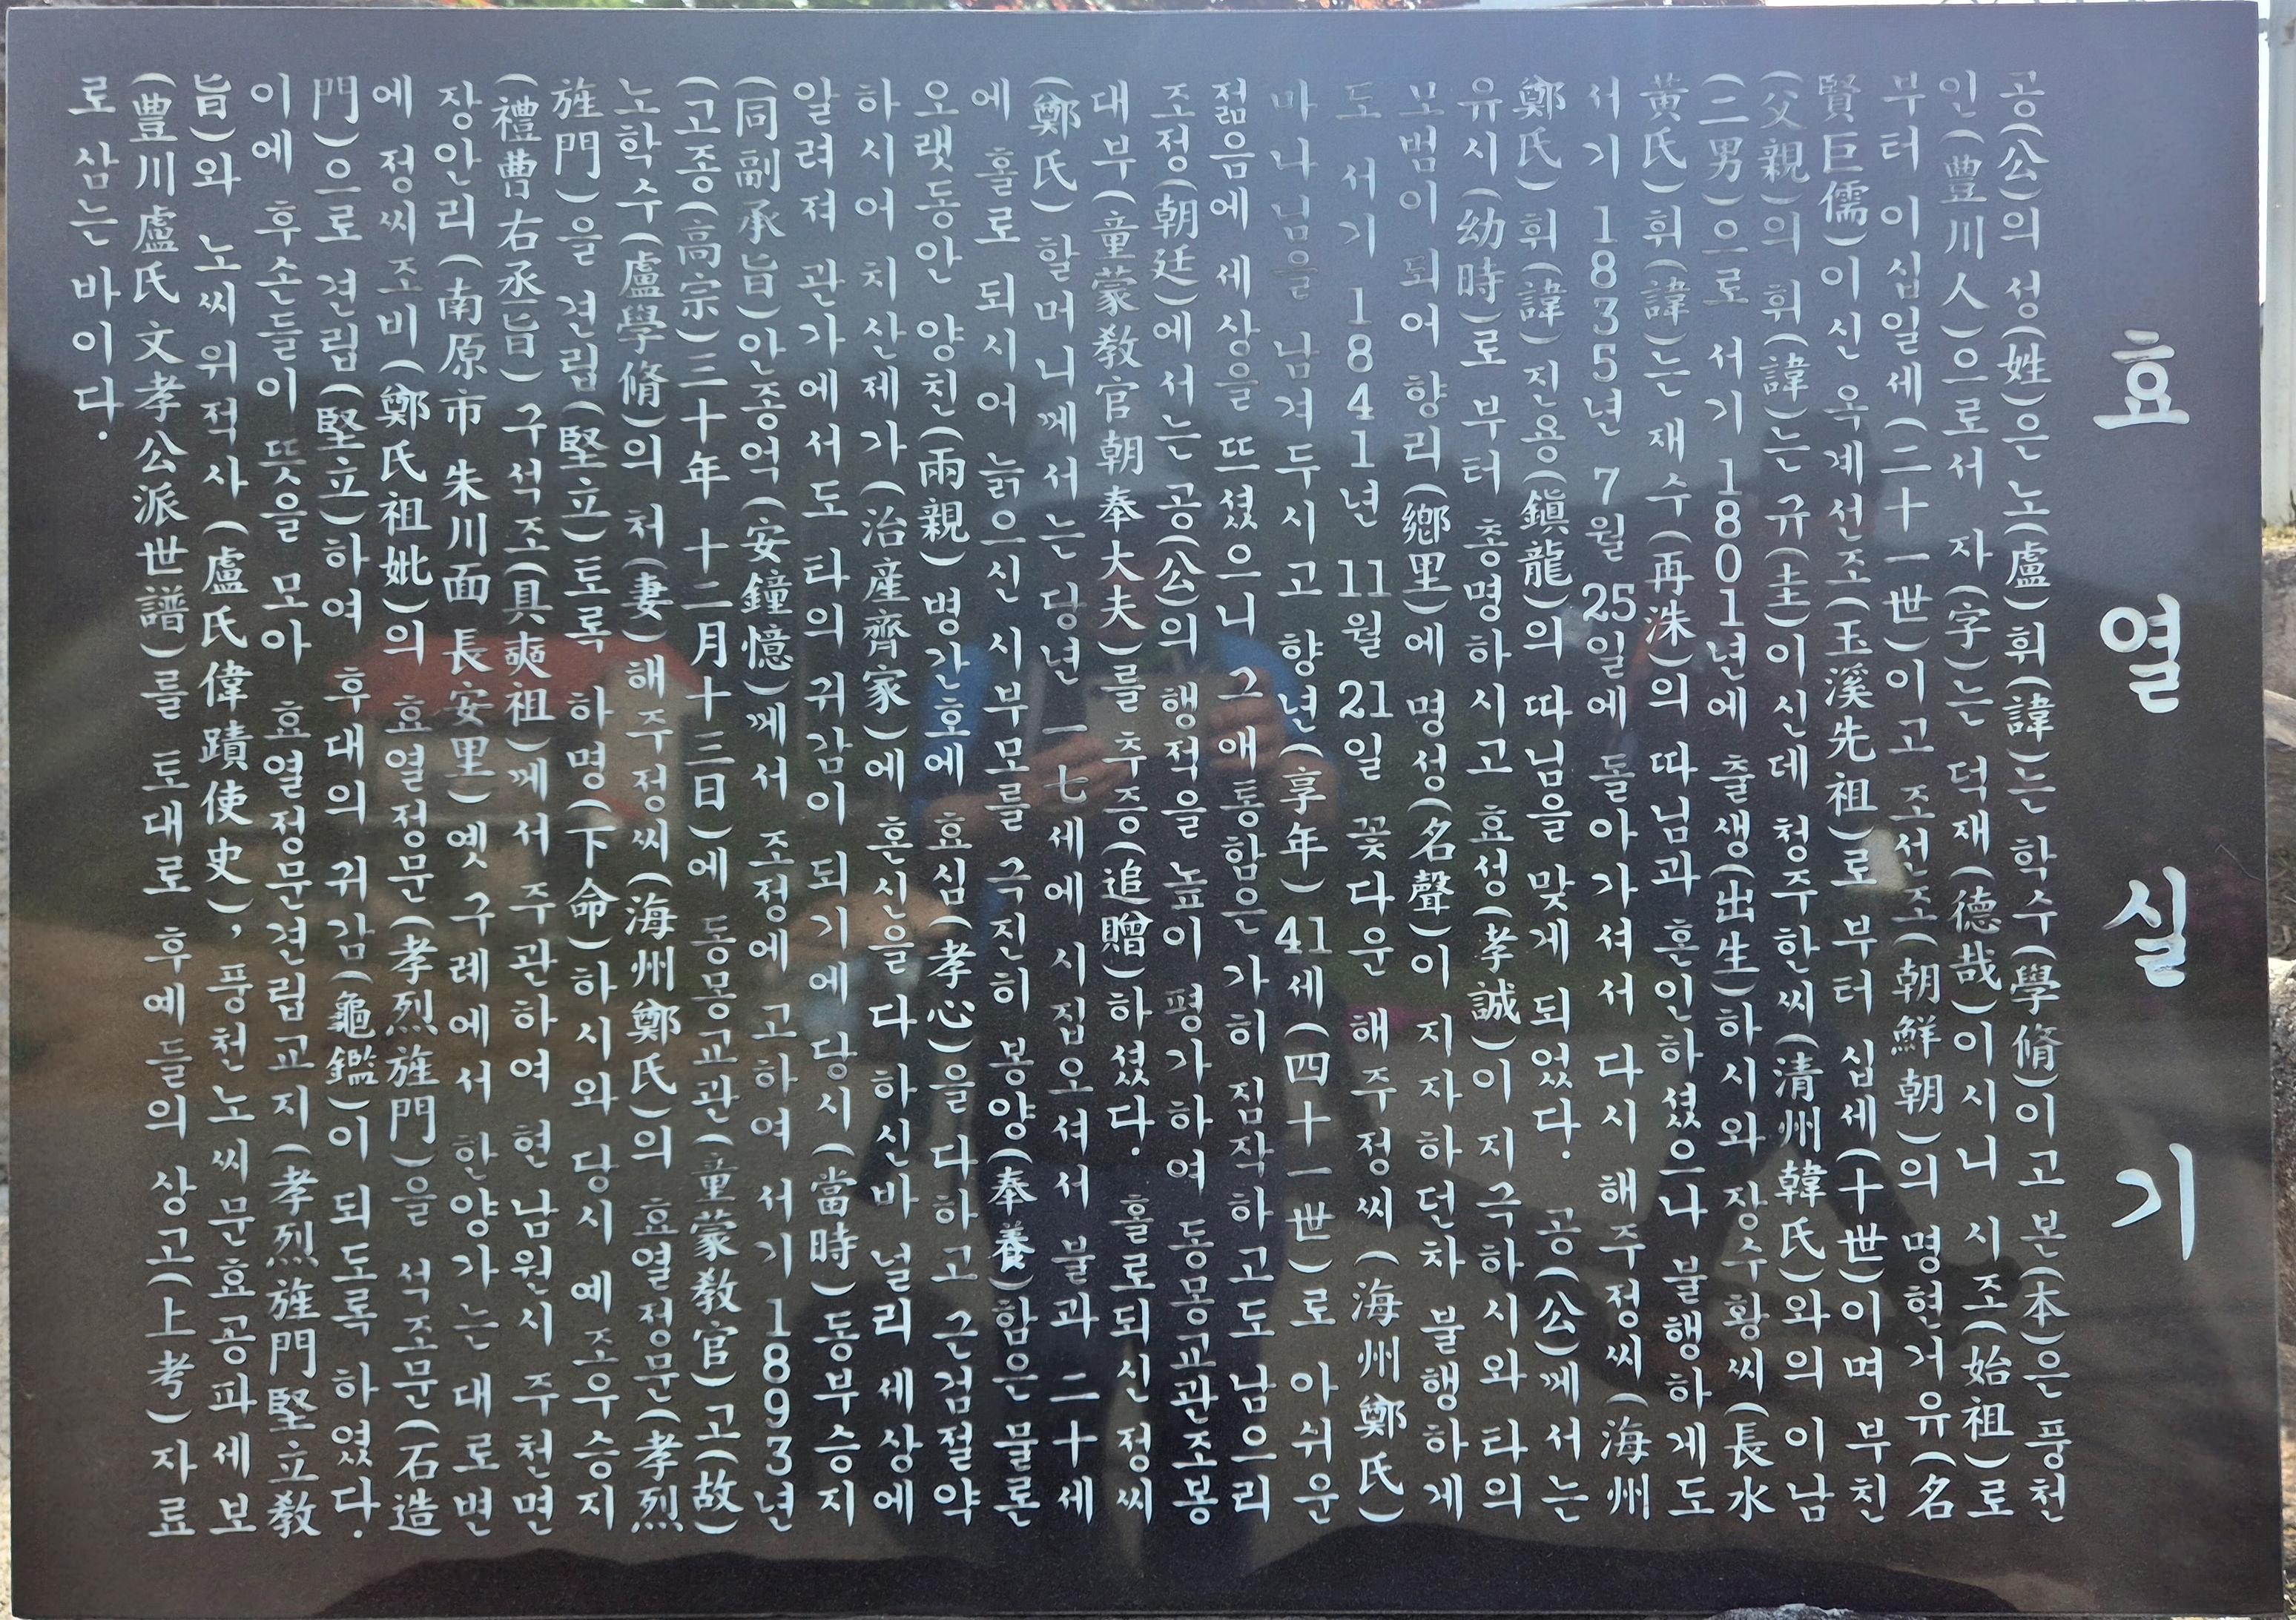 효 열 실 기
공(公)의 성(姓)은 노(盧)휘(諱)는 학수(學脩)이고 본(本)은 풍천
인(豊川人)으로서 자(字)는 덕재(德哉)이시니 시조(始祖)로
부터 이십일세(二十一世)이고 조선조(朝鮮朝)의 명현거유(名
賢巨儒)이신 옥계선조(玉溪先祖)로 부터 십세(十世)이며 부친
(父親)의 휘(諱)는 규(圭)이신데 청주한씨(清州韓氏)와의 이남
(二男)으로 서기 1801년에 출생(出生)하시와 장수황씨(長水
黃氏)휘(諱)는 재수(再洙)의 따님과 혼인하셨으나 불행하게도
서기 1835년 7월 25일에 돌아가셔서 다시 해주정씨(海州
鄭氏)휘(諱)진용(鎭龍)의 따님을 맞게 되었다. 공(公)께서는
유시(幼時)로 부터 총명하시고 효성(孝誠)이 지극하시와 타의
모범이 되어 향리(鄕里)에 명성(名聲)이 지자하던차 불행하게
도 서기 1841년 11월 21일 꽃다운 해주정씨(海州鄭氏)
마나님을 남겨두시고 향년(享年)41세(四十一世)로 아쉬운
젊음에 세상을 뜨셨으니 그애통함은 가히 짐작하고도 남으리
조정(朝廷)에서는 공(公)의 행적을 높이 평가하여 동몽교관조봉
대부(童蒙敎官朝奉大夫)를 추증(追贈)하셨다. 홀로되신 정씨
(鄭氏)할머니께서는 당년 一七세에 시집오셔서 불과 二十세
에 홀로 되시어 늙으신 시부모를 극진히 봉양(奉養)함은 물론
오랫동안 양친(兩親)병간호에 효심(孝心)을 다하고 근검절약
하시어 치산제가(治産齊家)에 혼신을 다하신바 널리 세상에
알려져 관가에서도 타의 귀감이 되기에 당시(當時)동부승지
(同副承旨)안종억(安鐘憶)께서 조정에 고하여 서기 1893년
(고종(高宗)三十年 十二月十三日)에 동몽교관(童蒙敎官)고(故)
노학수(盧學脩)의 처(妻)해주정씨(海州鄭氏)의 효열정문(孝烈
旌門)을 견립(堅立)토록 하명(下命)하시와 당시 예조우승지
(禮曹右丞旨)구석조(具奭祖)께서 주관하여 현 남원시 주천면
장안리(南原市 朱川面 長安里)옛 구례에서 한양가는 대로변
에 정씨조비(鄭氏祖妣)의 효열정문(孝烈旌門)을 석조문(石造
門)으로 견립(堅立)하여 후대의 귀감(龜鑑)이 되도록 하였다.
이에 후손들이 뜻을 모아 효열정문견립교지(孝烈旌門堅立敎
旨)와 노씨위적사(盧氏偉蹟使史), 풍천노씨문효공파세보
(豊川盧氏文孝公派世譜)를 토대로 후예들의 상고(上考)자료
로 삼는 바이다.